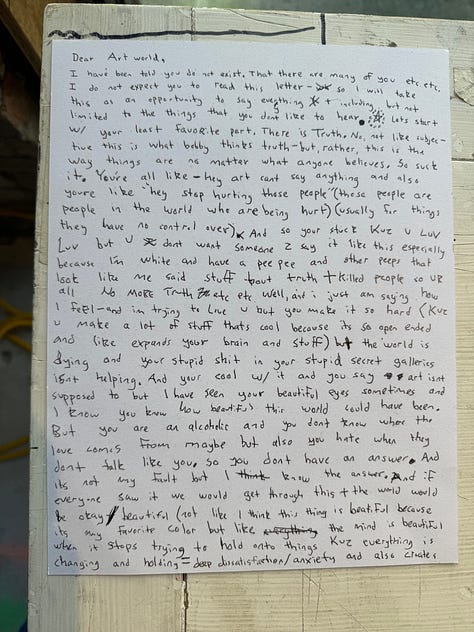 Dear Art world,
I have been told you do not exist. That there are many of you etc etc.
I do not expect you to read this letter - so I will take
this as an opportunity to say everything + including, but not
limited to the things that you dont like to hear. Lets start
w/ your least favorite part. There is Truth. No, not like subjec-
tive this is what bobby thinks truth - but, rather, this is the
way things are no matter what anyone believes. So suck
it. You're all like - hey art cant say anything and also
youre like "hey stop hurting those people" (those people are
people in the world who are being hurt) (usually for things
they have no control over). And so your stuck Kuz U LUV
LUV but U don't want someone 2 say it like this especially
because I'm white and have a pee pee and other peeps that
look like me said stuff bout truth + killed people so UR
all No MORE TRUTH etc etc well, and i just am saying how
I feel - and im trying to love u but you make it so hard (Kuz
u make a lot of stuff thats cool because its so open ended
and like expands your brain and stuff) but the world is
dying and your stupid shit in your stupid secret galleries
isnt helping. And your cool w/ it and you say art isnt
supposed to but I have seen your beautiful eyes sometimes and
I know you know how beautiful this world could have been.
But you are an alcoholic and you dont know where the
love comes from maybe but also you hate when they
dont talk like you. So you dont have an answer. And
its not my fault but I think know the answer. And if
everyone saw it we would get through this + the world would
be okay / beautiful (not like I think this thing is beatiful because
its my favorite color but like everything the mind is beautiful
when it stops trying to hold onto things Kuz everything is
changing and holding = deep dissatisfaction/anxiety and also creates